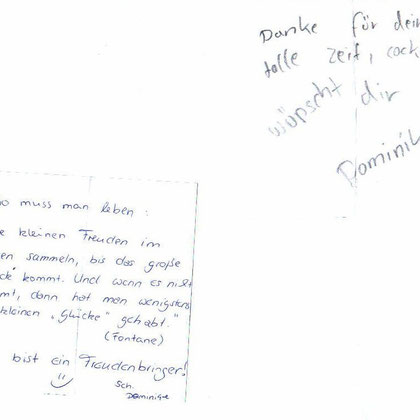 Danke für dein
tolle Zeit, cock
wünscht dir
Dominik
o muss man leben :
e kleinen Freuden im
en sammeln, bis das große
ck" kommt. Und wenn es nicht
mt, dann hat man wenigstens
kleinen „Glücke" gehabt."
(Fontane)
bist ein Freudenbringer!
Sch.
Dominique